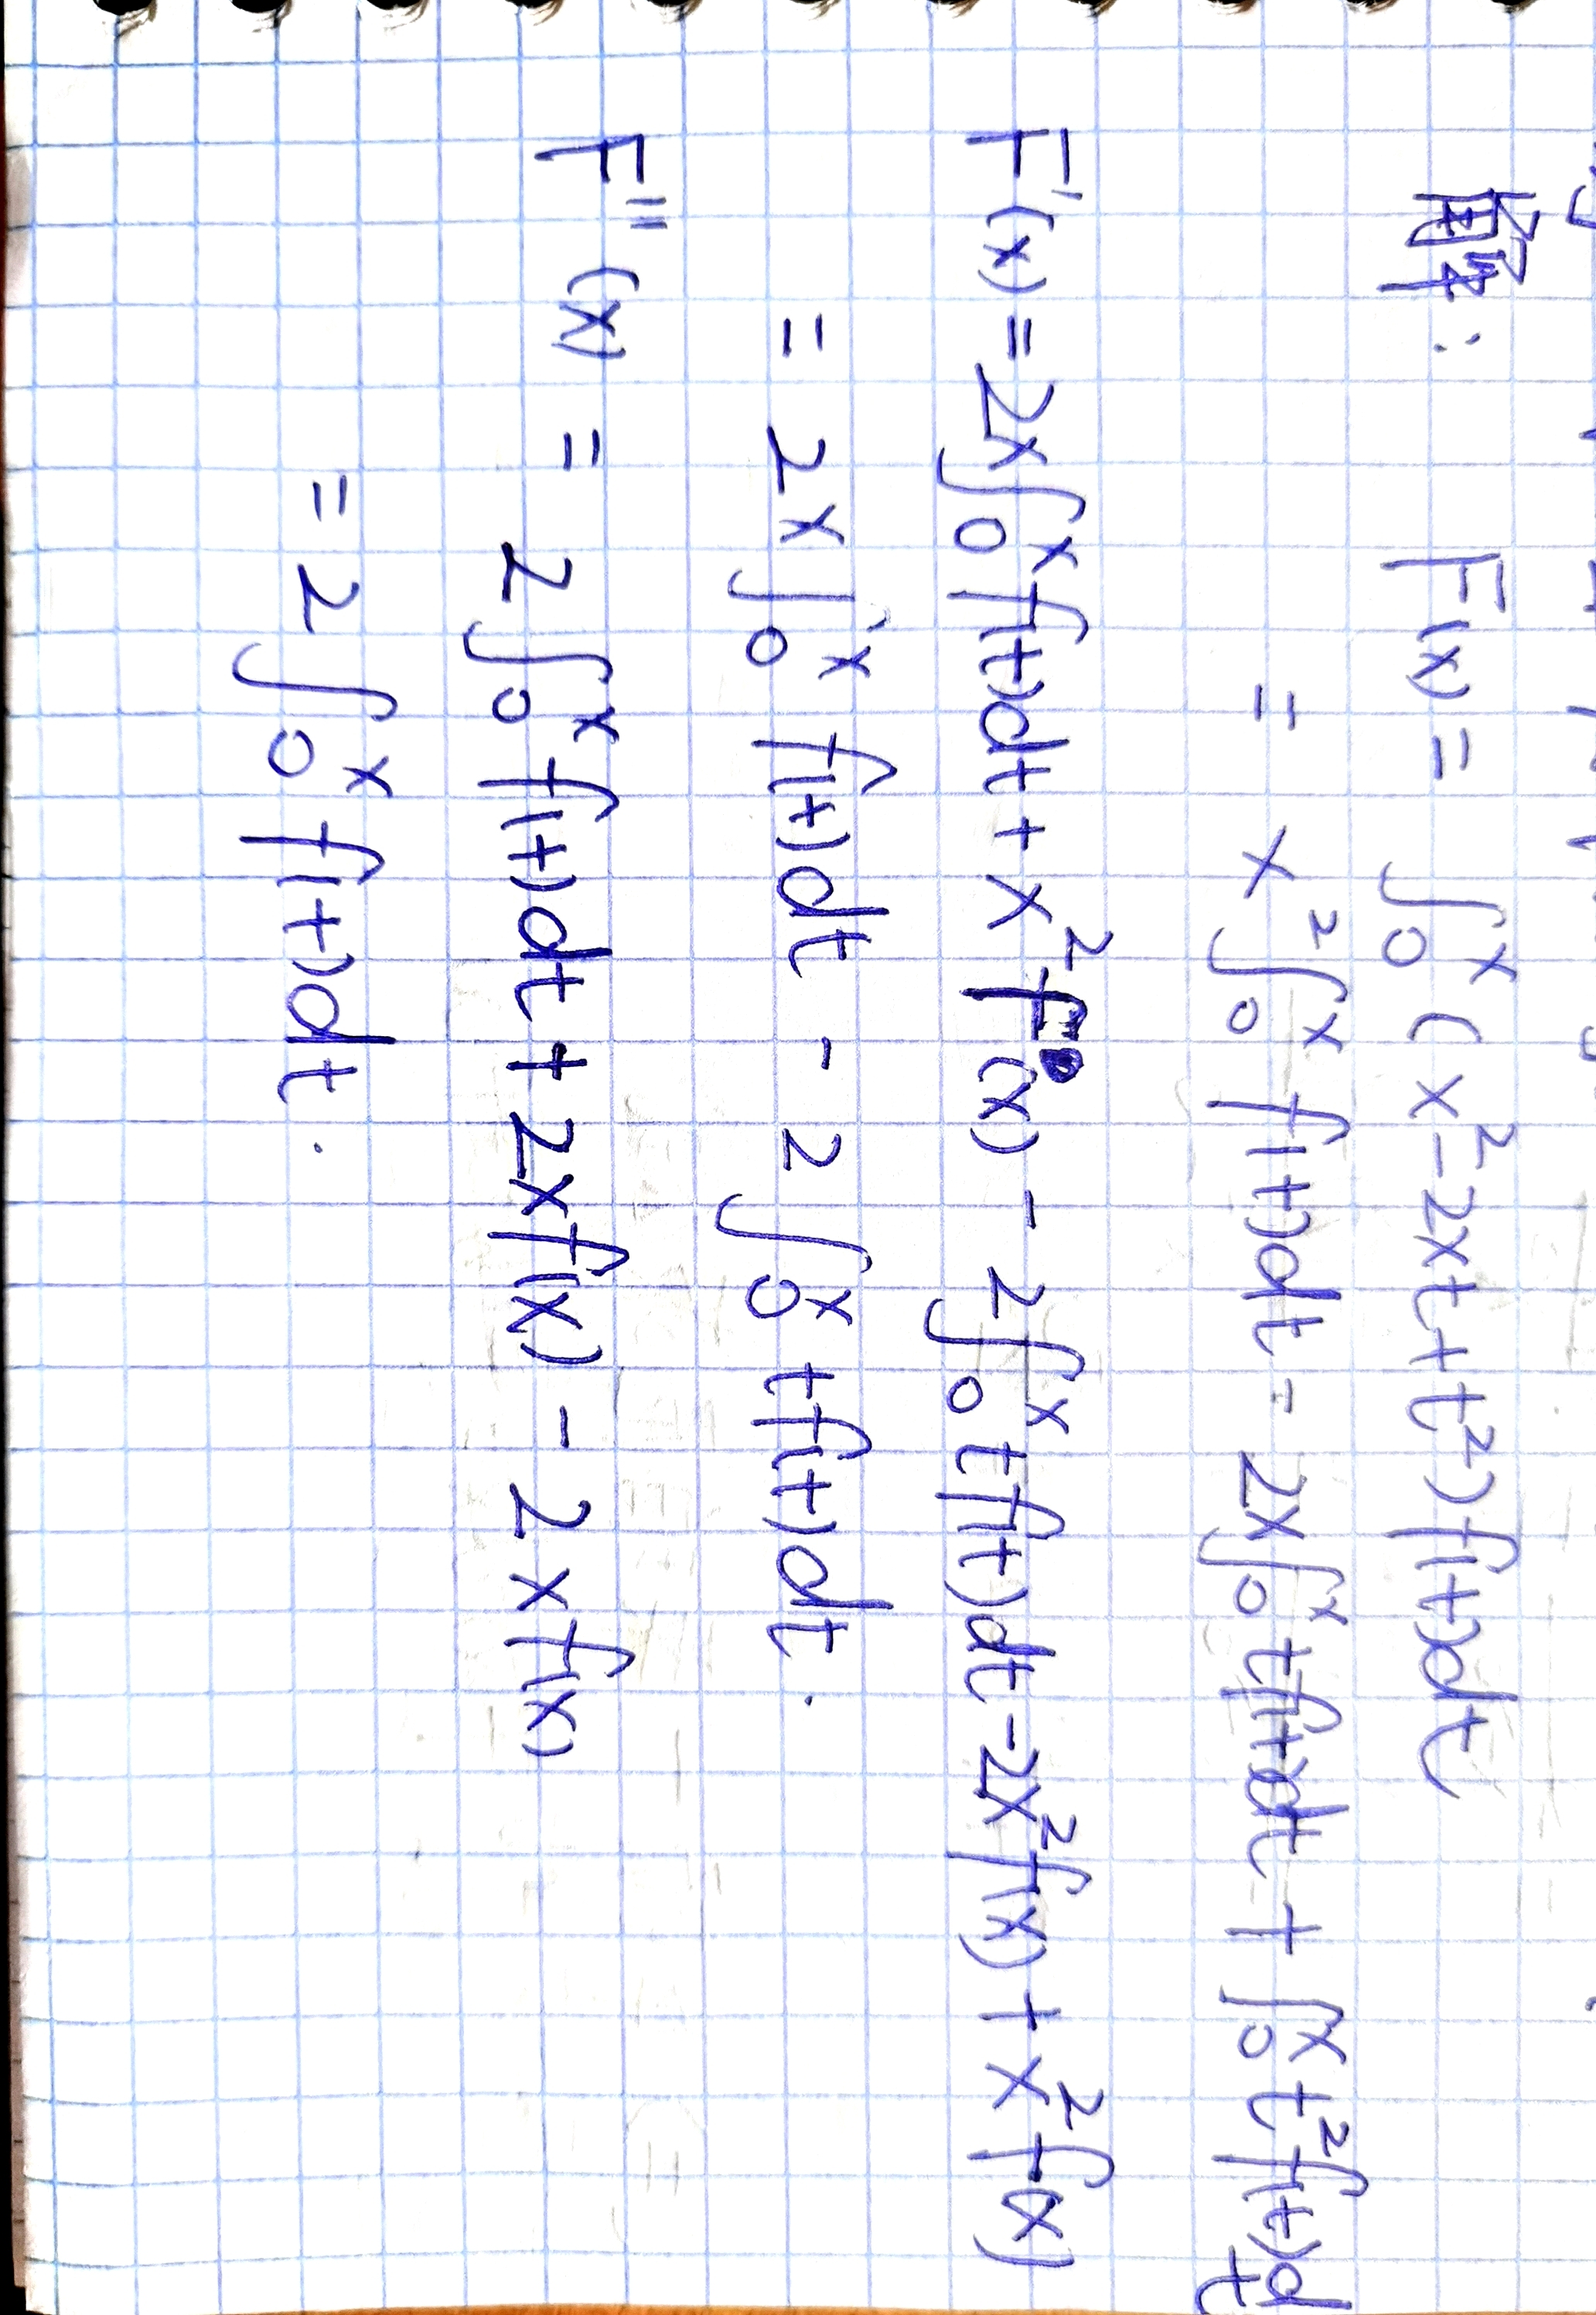 解: F(x) = ∫₀ˣ (x² - 2xt + t²) f(t)dt
= x² ∫₀ˣ f(t)dt - 2x ∫₀ˣ tf(t)dt + ∫₀ˣ t² f(t)dt
F'(x) = 2x ∫₀ˣ f(t)dt + x² f(x) - 2 ∫₀ˣ tf(t)dt - 2x² f(x) + x² f(x)
= 2x ∫₀ˣ f(t)dt - 2 ∫₀ˣ tf(t)dt.
F''(x) = 2 ∫₀ˣ f(t)dt + 2xf(x) - 2xf(x)
= 2 ∫₀ˣ f(t)dt.